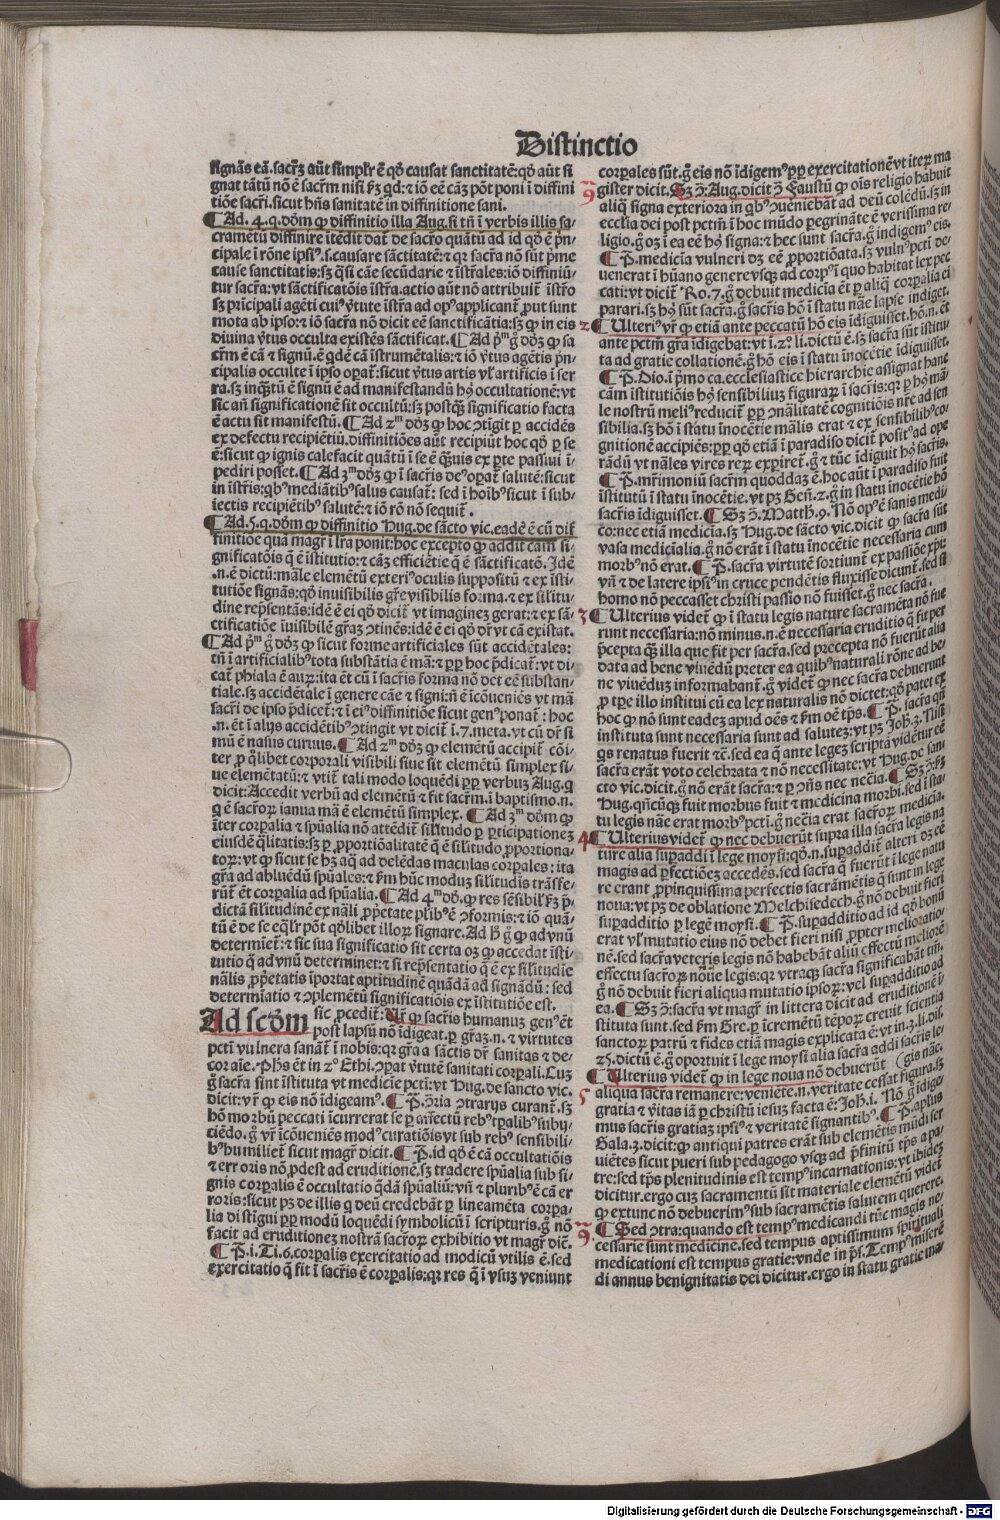 Distinctio
signās eā. sacrm̄ aūt simplr̄ ē qđ causat sanctitatē: qđ aūt si
gnat tātū nō ē sacrm̄ nisi
tiōe sacri. sicut hn̄s sanitatē in diffinitione sani.
¶ Ad .4. q. dōm ꝙ diffinitio illa Aug. si tn̄ ī verbis illis sa-
cramētū diffinire itēdit dat̄ de sacro quātū ad id qđ ē pn̄-
cipale ī rōne ipsiꝰ .s. causare sāctitatē: ⁊ qr sacra nō sūt prīme
cause sanctitatis: sꝫ qsi cāe secūdarie ⁊ īstrales: iō diffiniū-
tur sacra: vt sāctificatōis īstra. actio aūt nō attribuit̄ īstro
sꝫ prīcipali agēti cuiꝰ v̄tute īstra ad opꝰ applicant̄ ꝓut sunt
mota ab ipso: ⁊ iō sacra nō dicit eē sanctificātia: sꝫ ꝙ in eis
diuina v̄tus occulta existēs sāctificat. ¶ Ad pͫ g̊ dōꝫ ꝙ sa
crm̄ ē cā ⁊ signū. ē qdē cā īstrumētalis: ⁊ iō v̄tus agētis pn̄-
cipalis occulte ī ipso oꝑat̄: sicut v̄tus artis vl̓ artificis ī ser
ra. sꝫ inqͣtū ē signū ē ad manifestandū hꝰ occultationē: vt
sic añ significationē sit occultū: sꝫ postqͣꝫ significatio facta
ē actu sit manifestū. ¶ Ad 2ͫ dōꝫ ꝙ hoc ↄtigit ꝑ accidēs
ex defectu recipiētiū. diffinitiōes aūt recipiūt hoc qđ ꝑ se
ē: sicut ꝙ ignis calefacit quātū ī se ē quis ex ꝑte passiui ī-
pediri posset. ¶ Ad 3ͫ dōꝫ ꝙ ī sacris deꝰ oꝑat̄ salutē: sicut
in īstris: qbꝰ mediātibꝰ salus causat̄: sed ī hoībꝰ sicut ī sub-
iectis recipiētibꝰ salutē: ⁊ iō rō nō sequit̄.
¶ Ad .5. q. dōm ꝙ diffinitio Hug. de sācto vic. eadē ē cū dif
finitiōe quā magr̄ ī lr̄a ponit: hoc excepto ꝙ addit cām si-
gnificatōis q̄ ē īstitutio: ⁊ cāꝫ efficiētē q̄ ē sāctificatō. Idē
.n. ē dictū: māle elemētū exteriꝰ oculis suppositū ⁊ ex īsti-
tutiōe signās: qđ inuisibilis gr̄e visibilis forma. ⁊ ex silitu
dine rep̄sentās: idē ē ei qđ dicit̄ vt imaginez gerat: ⁊ ex sā-
ctificatiōe īuisibilē gr̄aꝫ ↄtinēs: idē ē ei qđ dr̄ vt cā existat.
¶ Ad pͫ g̊ dōꝫ ꝙ sicut forme artificiales sūt accidētales:
tn̄ ī artificialibꝰ tota substātia ē mā: ⁊ ꝓp̄ hoc p̄dicat̄: vt di-
cat̄ phiala ē auꝝ: ita ēt cū ī sacris forma nō det eē substan-
tiale. sꝫ accidētale ī genere cāe ⁊ signi: nō ē īcōueniēs vt mā
sacri de ipso p̄dicet̄: ⁊ ī eiꝰ diffinitiōe sicut genꝰ ponat̄: hoc
.n. ēt ī alijs accidētibꝰ ↄtingit vt dicit̄ ī .7. meta. vt cū dr̄ si
mū ē nasus curuus. ¶ Ad 2ͫ dōꝫ ꝙ elemētū accipit̄ cōi-
ter ꝓ qlibet corporali visibili siue sit elemētū simplex si-
ue elemētatū: ⁊ vtit̄ tali modo loquēdi ꝓp̄ verbuꝫ Aug. q
dicit: Accedit verbū ad elemētū ⁊ fit sacrm̄. ī baptismo .n.
q̄ ē sacroꝝ ianua mā ē elemētū simplex. ¶ Ad 3ͫ dōm ꝙ
īter corꝑalia ⁊ spūalia nō attēdit̄ silitudo ꝑ ꝑticipationeꝫ
eiusdē qlitatis: sꝫ ꝑ ꝓportiōalitatē q̄ ē silitudo ꝓportiona-
toꝝ: vt ꝙ sicut se hꝫ aq̄ ad delēdas maculas corꝑales: ita
gr̄a ad abluēdū spūales: ⁊ ẜm hūc moduꝫ silitudīs trāsfe-
rūt̄ ēt corꝑalia ad spūalia. ¶ Ad 4ͫ dō. ꝙ res sēsibil̓ ẜꝫ p̄-
dictā silitudinē ex nāli ꝓp̄etate pl̓ibꝰ ē ↄformis: ⁊ iō quā-
tū ē de se eql̓r pōt qđlibet illoꝝ signare. Ad hͦ g̊ ꝙ ad vnū
determiet̄: ⁊ sic sua significatio sit certa oꝫ ꝙ accedat īsti-
tutio q̄ ad vnū determinet: ⁊ si rep̄sentatio q̄ ē ex silitudīe
nālis ꝓp̄etatis īportat aptitudinē quādā ad signādū: sed
determīatio ⁊ ↄplemētū significatiōis ex īstitutiōe est.
Ad scđm sic ꝓcedit̄: Vr̄ ꝙ sacris humanuꝫ genꝰ ēt
post lapsū nō īdigeat. ꝑ gr̄aꝫ .n. ⁊ virtutes
pcti vulnera sanāt̄ ī nobis: qr gr̄a a sāctis dr̄ sanitas ⁊ de-
cor aīe. Phs̄ ēt in 2ͦ Ethi. ↄꝑat v̄tutē sanitati corꝑali. Cuꝫ
g̊ sacra sint īstituta vt medicīe pcti: vt Hug. de sancto vic.
dicit: vr̄ ꝙ eis nō īdigeamꝰ. ¶ P̄. ↄ̄ria ↄtrarijs curant̄. sꝫ
hō morbū peccati īcurrerat se ꝑ affectū rebꝰ tꝑalibꝰ subij-
ciēdo. g̊ vr̄ īcōueniēs modꝰ curatiōis vt sub rebꝰ sensibili-
bꝰ humiliet̄ sicut magr̄ dicit. ¶ P̄. id qđ ē cā occultatiōis
⁊ erroris nō ꝓdest ad eruditionē. sꝫ tradere spūalia sub si-
gnis corꝑalis ē occultatio qdā spūaliū: vn̄ ⁊ pluribꝰ ē cā er
roris: sicut pꝫ de illis q deū credebāt ꝑ lineamēta corꝑa-
lia distigui ꝓp̄ modū loquēdi symbolicū ī scripturis. g̊ nō
facit ad eruditioneꝫ nostrā sacroꝝ exhibitio vt magr̄ dic̄.
¶ P̄. i. Ti. 6. corꝑalis exercitatio ad modicū vtilis ē. sed
exercitatio q̄ fit ī sacris ē corꝑalis: qr res q̄ ī vsuꝫ veniunt
corporales sūt. g̊ eis nō īdigemꝰ ꝓp̄ exercitationē vt iteꝝ ma
gister dicit. Sꝫ ↄ̄: Aug. dicit ↄ̄ Faustū ꝙ oīs religio habuit
aliq̄ signa exteriora in qbꝰ ↄueniebāt ad deū colēdū. sꝫ in
ecclīa dei post pctm̄ ī hoc mūdo peregrināte ē verissima re-
ligio. g̊ oꝫ ī ea eē hꝰ signa: ⁊ hec sunt sacra. g̊ indigemꝰ eis.
¶ P̄. medicīa vulneri dꝫ eē ꝓportiōata. sꝫ vulnꝰ pcti de-
uenerat ī hūano genere vsqꝫ ad corpꝰ ī quo habitat lex pec
cati: vt dicit̄ Ro. 7. g̊ debuit medicīa ēt ꝑ aliq̄ corꝑalia ei
parari. sꝫ hꝰ sūt sacra. g̊ sacris hō ī statu nāe lapse indiget.
2 ¶ Ulteriꝰ vr̄ ꝙ etiā ante peccatū hō eis īdiguisset. hō .n. ēt
ante pctm̄ gr̄a īdigebat: vt ī .2ͦ. li. dictū ē. sꝫ sacra sūt īstitu-
ta ad gratie collationē. g̊ hō eis ī statu īnocētie īdiguisset.
¶ P̄. Dio. ī p̄mo ca. ecclesiastice hierarchie assignat hanc
cām īstitutiōis hꝰ sensibiliuꝫ figuraꝝ ī sacris: qr ꝑ hꝰ mā-
le nostrū meliꝰ reducit̄ ꝓp̄ ↄnālitatē cognitiōis nr̄e ad sen
sibilia. sꝫ hō ī statu īnocētie mālis erat ⁊ ex sensibilibꝰ co-
gnitionē accipiēs: ꝓp̄ qđ etiā ī paradiso dicit̄ positꝰ ad ope
rādū vt nāles vires reꝝ exꝑiret̄. g̊ ⁊ tūc īdiguit hꝰ sacris.
¶ P̄. mr̄imoniū sacrm̄ quoddaꝫ ē. hoc aūt ī paradiso fuit
īstitutū ī statu īnocētie. vt pꝫ Gen̄. 2. g̊ in statu īnocētie hō
sacris īdiguisset. ¶ Sꝫ ↄ̄. Matth. 9. Nō opꝰ ē sanis medi-
co: nec etiā medicīa. sꝫ Hug. de sācto vic. dicit ꝙ sacra sūt
vasa medicīalia. g̊ nō erāt ī statu īnocētie necessaria cum
morbꝰ nō erat. ¶ P̄. sacra virtutē sortiunt̄ ex passiōe xp̄i:
vn̄ ⁊ de latere ipsiꝰ in cruce pendētis fluxisse dicunt̄. sed si
homo nō peccasset christi passio nō fuisset. g̊ nec sacra.
3 ¶ Ulterius videt̄ ꝙ ī statu legis nature sacramēta nō fue
runt necessaria: nō minus .n. ē necessaria eruditio q̄ fit per
p̄cepta qͣꝫ illa que fit per sacra. sed precepta nō fuerūt alia
data ad bene viuēdū preter ea quibꝰ naturali rōne ad be-
ne viuēduꝫ informabant̄. g̊ videt̄ ꝙ nec sacra debuerunt
ꝓ tꝑe illo institui cū ea lex naturalis nō dictet: qđ patet ex
hoc ꝙ nō sunt eadeꝫ apud oēs ⁊ ẜm oē tꝑs. ¶ P̄. sacra q̄
instituta sunt necessaria sunt ad saluteꝫ: vt pꝫ Joh̄. 3. Nisi
qs renatus fuerit ⁊c̄. sed ea q̄ ante legeꝫ scriptā videt̄ eē
sacra erāt voto celebrata ⁊ nō necessitate: vt Hug. de san-
cto vic. dicit. g̊ nō erāt sacra: ⁊ ꝑ ↄn̄s nec nec̄ia. ¶ Sꝫ ↄ̄: ẜꝫ
Hug. qn̄cūqꝫ fuit morbus fuit ⁊ medicina morbi. sed ī sta-
tu legis nāe erat morbꝰ pcti. g̊ nec̄ia erat sacroꝝ medicīa.
4 ¶ Ulterius videt̄ ꝙ nec debuerūt supra illa sacra legis na
ture alia suꝑaddi ī lege moysi: qđ .n. suꝑaddit̄ alteri dꝫ eē
magis ad ꝑfectiōeꝫ accedēs. sed sacra q̄ fuerūt ī lege natu
re erant ꝓpinquissima perfectis sacramētis q̄ sunt in lege
noua: vt pꝫ de oblatione Melchisedech. g̊ nō debuit fieri
suꝑadditio ꝑ legē moysi. ¶ P̄. suꝑadditio ad id qđ bonū
erat vl̓ mutatio eius nō debet fieri nisi ꝓpter melioratio-
nē. sed sacra veteris legis nō habebāt aliū effectū meliorē
effectu sacroꝝ noue legis: qr vtraqꝫ sacra significabāt tm̄.
g̊ nō debuit fieri aliqua mutatio ipsoꝝ: vel suꝑadditio ad
ea. ¶ Sꝫ ↄ̄: sacra vt magr̄ in littera dicit ad eruditionē ī
stituta sunt. sed ẜm Gre. ꝑ īcremētū tēpoꝝ creuit scientia
sanctoꝝ patrū ⁊ fides etiā magis explicata ē: vt in .3. li. dis.
25. dictū ē. g̊ oportuit ī lege moysi alia sacra addi sacris le-
5 ¶ Ulterius videt̄ ꝙ in lege noua nō debuerūt (gis nāe.
aliqua sacra remanere: veniēte .n. veritate cessat figura. sꝫ
gratia ⁊ v̄itas iā ꝑ christū iesuꝫ facta ē: Joh̄. i. Nō g̊ īdige-
mus sacris gratiaꝫ ipsiꝰ ⁊ veritatē signantibꝰ. ¶ P̄. apl̓us
Gala. 3. dicit: ꝙ antiqui patres erāt sub elemētis mūdi ser
uiētes sicut pueri sub pedagogo vsqꝫ ad p̄finitū tp̄s a pa-
tre: sed tp̄s plenitudinis est tempꝰ incarnationis: vt ibideꝫ
dicitur. ergo cuꝫ sacramentū sit materiale elemētū videt̄
ꝙ ex tunc nō debuerimꝰ sub sacramētis salutem querere.
¶ Sed ↄtra: quando est tempꝰ medicandi tūc magis ne-
cessarie sunt medicine. sed tempus aptissimum spirituali
medicationi est tempus gratie: vnde in ps̄. Tempꝰ miserē
di annus benignitatis dei dicitur. ergo in statu gratie ma-
Digitalisierung gefördert durch die Deutsche Forschungsgemeinschaft - DFG